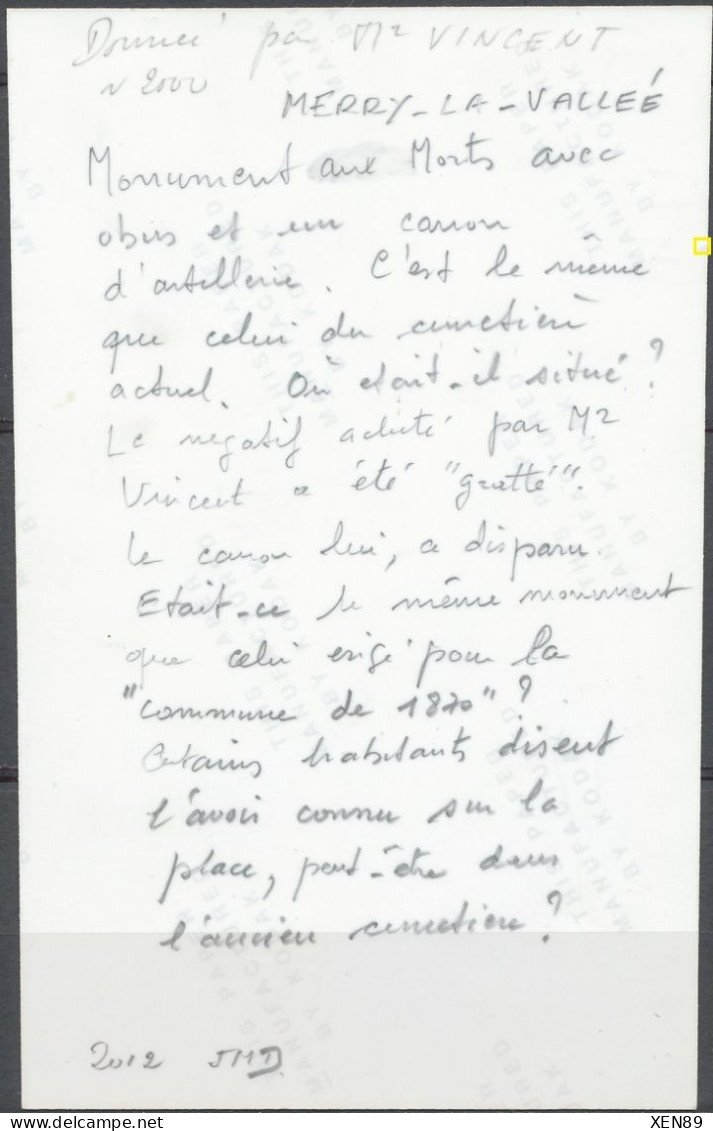 Donnée par Mr VINCENT
N 2000
MERRY-LA-VALLEÉ
Monument aux Morts avec
obus et un canon
d'artillerie. C'est le même
que celui du cimetière
actuel. Où etait-il situé?
Le negatif acheté par Mr
Vincent a été "gratté".
Le canon lui, a disparu.
Etait-ce le même monument
que celui erigé pour la
"commune de 1870"?
Certains habitants disent
l'avoir connu sur la
place, peut-être dans
l'ancien cimetière?
2012 JMD
THIS PAPER
MANUFACTURED
BY KODAK
delcampe.net
XEN89